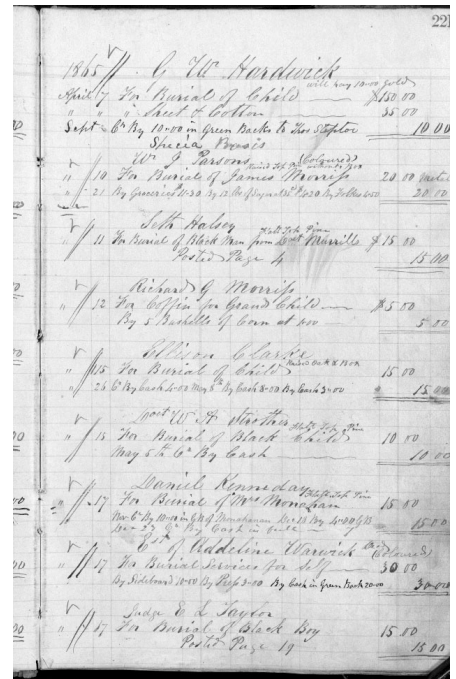 221
1865 G W Hardwick
will pay 10.00 Gold
April 7 For Burial of Child $150.00
" " " Sheet & Cotton 35.00
Sept Cr By 10.00 in Green Backs to Thos 10.00
Specia Basis
Wm J Parsons Coloured
" 10 For Burial of James Morriss 20.00
" 21 By Groceries 11.30 By 12 lbs of Sugar 4.20 By 4.50 20.00
Seth Halsey
" 11 For Burial of Black Man from Murrille $15.00
Posted Page 4 15.00
Richard G Morriss
" 12 For Coffin for Grand Child $5.00
By 5 Bushells of Corn at 5.00
Ellison Clarke
" 15 For Burial of Child 15.00
" 26 Cr By Cash 4.00 May 8th By Cash 8.00 By Cash 3.00 15.00
Doct W A Strother
" 15 For Burial of Black Child 10.00
May 5th Cr By Cash 10.00
Daniel Kenneday
" 17 For Burial of Mrs Monahan 15.00
Nov 6th By 10.00 in GB of Monahan Dec 13 By 4.00 GB 15.00
By Cash in
Est of Addeline Warwick Coloured
" 17 For Burial Services for Self 30.00
By Sideboard 18.00 By 2.00 By Cash in Green Backs 20.00 30.00
Judge E L Taylor
" 17 For Burial of Black Boy 15.00
Posted Page 19 15.00